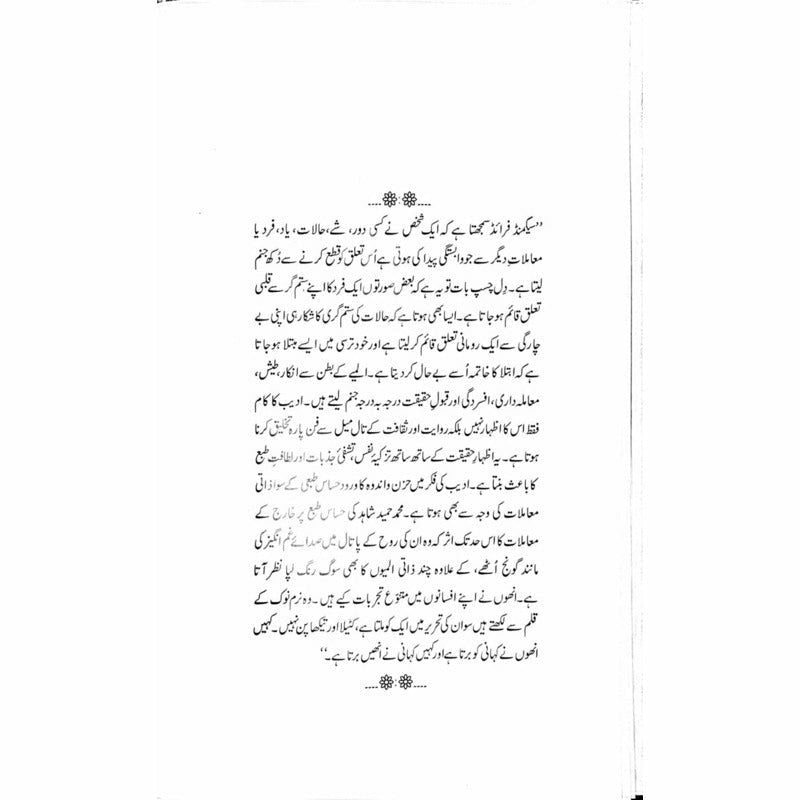 ’’سیگمنڈ فرائڈ سمجھتا ہے کہ ایک شخص نے کسی دور، شے، حالات، یاد، فرد یا
معاملاتِ دیگر سے جو وابستگی پیدا کی ہوتی ہے اُس تعلق کو قطع کرنے سے دُکھ جنم
لیتا ہے۔ دِل چسپ بات تو یہ ہے کہ بعض صورتوں ایک فرد کا اپنے سِتم گر سے قلبی
تعلق قائم ہو جاتا ہے۔ ایسا بھی ہوتا ہے کہ حالات کی ستم گری کا شکار ہی اپنی بے
چارگی سے ایک رومانی تعلق قائم کر لیتا ہے اور خود ترسی میں ایسے مبتلا ہو جاتا
ہے کہ ابتلا کا خاتمہ اُسے بے حال کر دیتا ہے۔ المیے کے بطن سے انکار، طیش،
معاملہ داری، افسردگی اور قبولِ حقیقت درجہ بہ درجہ جنم لیتے ہیں۔ ادیب کا کام
فقط اس کا اظہار نہیں بلکہ روایت اور ثقافت کے تال میل سے فن پارہ تخلیق کرنا
ہوتا ہے۔ یہ اظہارِ حقیقت کے ساتھ ساتھ تزکیۂ نفس، تشفیٔ جذبات اور لطافتِ طبع
کا باعث بنتا ہے۔ ادیب کی فکر میں حزن و اندوہ کا ورود حساس طبعی کے سوا ذاتی
معاملات کی وجہ سے بھی ہوتا ہے۔ محمد حمید شاہد کی حساس طبع پر خارج کے
معاملات کا اس حد تک اثر کہ وہ ان کی روح کے پاتال میں صدائے غم انگیز کی
مانند گونج اُٹھے، کے علاوہ چند ذاتی المیوں کا بھی سوگ رنگ لپا نظر آتا
ہے۔ انھوں نے اپنے افسانوں میں متنوّع تجربات کیے ہیں۔ وہ نرم نوک کے
قلم سے لکھتے ہیں سو ان کی تحریر میں ایک کوملتا ہے، کٹیلا اور تیکھا پن نہیں۔ کہیں
انھوں نے کہانی کو برتا ہے اور کہیں کہانی نے انھیں برتا ہے۔‘‘